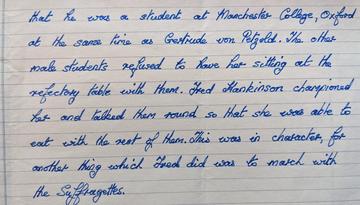 that he was a student at Manchester College, Oxford
at the same time as Gertrude von Petzold. The other
male students refused to have her sitting at the
refectory table with them. Fred Hankinson championed
her and talked them round so that she was able to
eat with the rest of them. This was in character, for
another thing which Fred did was to march with
the Suffragettes.